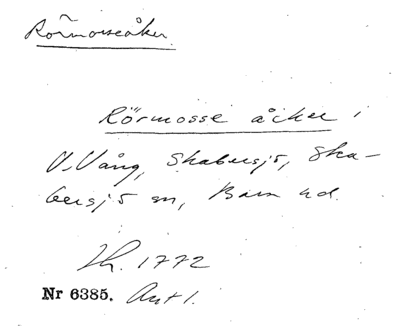 Rörmosseåker.
Rörmosse åcker i
V. Vång, Skabersjö, Ska-
bersjö sn, Bara hd.
Lh. 1772
Nr 6385. Akt 1.